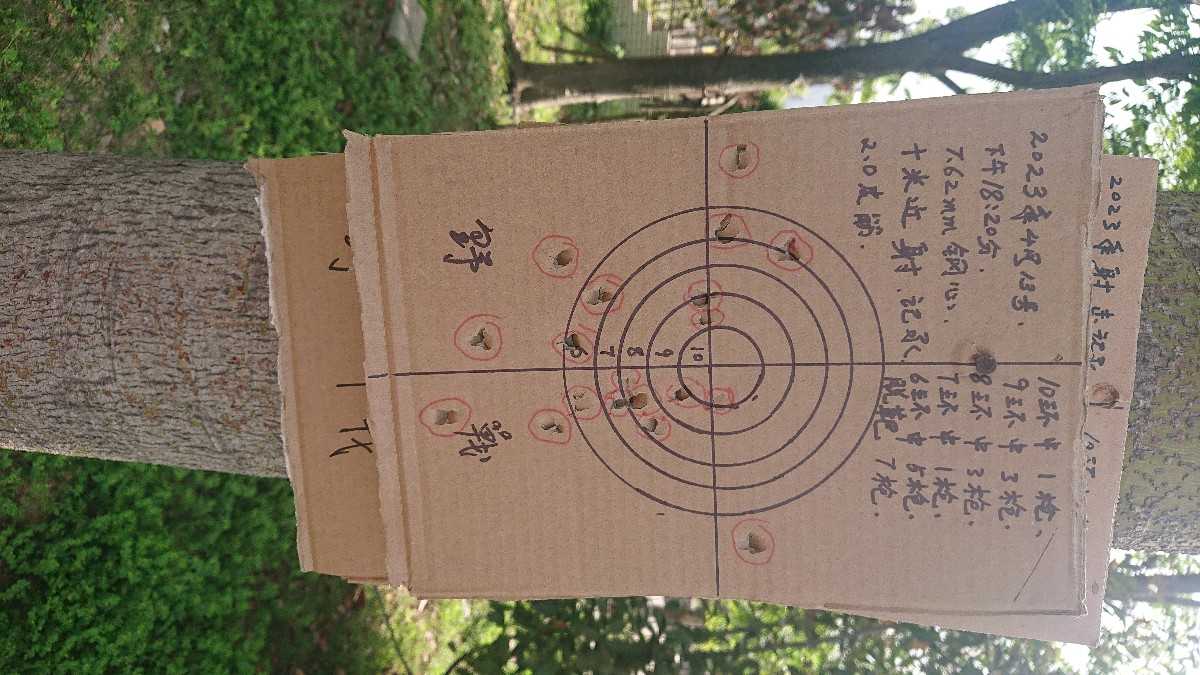 2023年射击记录
10环
2023年4月13号.
下午18:20分.
7.62mm 钢心.
十米近射.记录
2.0皮筋.
10环中 1枪.
9环中 3枪.
8环中 3枪.
7环中 1枪.
6环中 5枪.
脱靶 7枪.
10
9
8
7
6